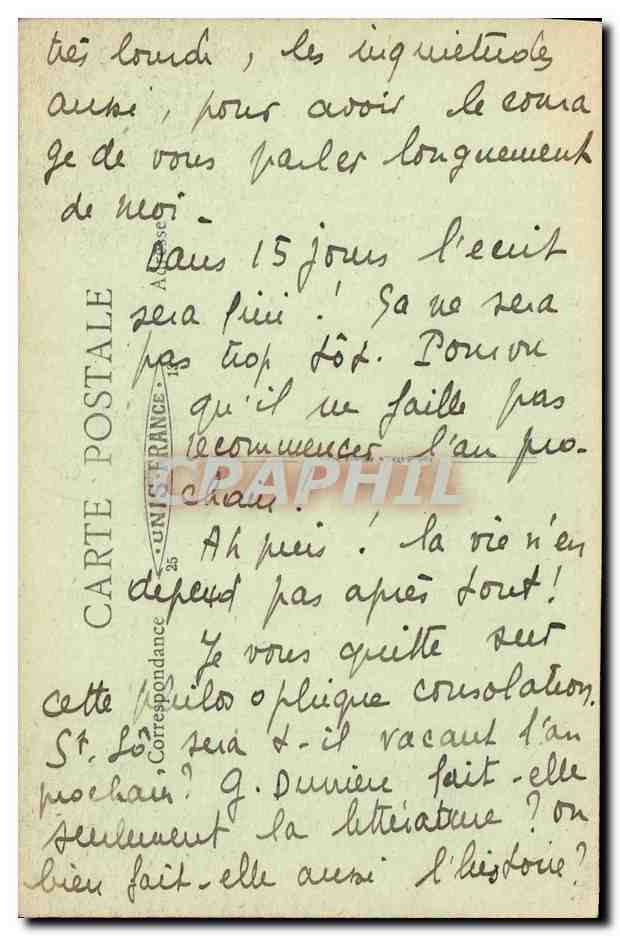 très lourde, les inquietudes
aussi, pour avoir le coura
ge de vous parler longuement
de moi -
Dans 15 jours l'ecrit
sera fini ! Ça ne sera
pas trop tôt. Pourvu
qu'il ne faille pas
recommencer l'an pro-
chain.
Ah puis ! la vie n'en
depend pas après tout !
Je vous quitte sur
cette philosophique consolation.
St. Lô sera t-il vacant l'an
prochain ? G. fait-elle
seulement la littérature ? ou
bien fait-elle aussi l'histoire ?
CARTE POSTALE
Correspondance
Adresse
25 UNIS-FRANCE 13
CPAPHIL